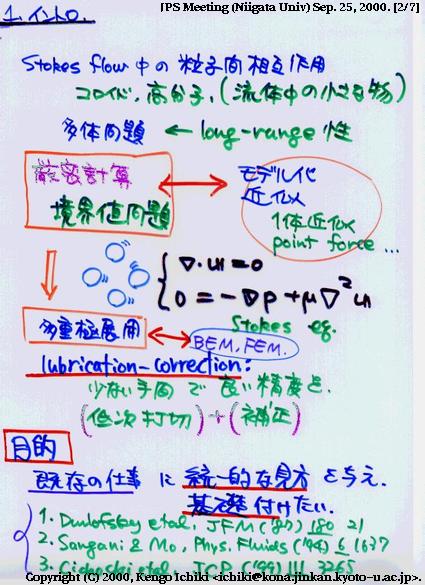 JPS Meeting (Niigata Univ) Sep. 25, 2000. [2/7]
1. イントロ.
Stokes flow 中の 粒子間相互作用
コロイド, 高分子, (流体中の小さな物)
多体問題 ← long-range 性
厳密計算
境界値問題
モデル化
近似
1体近似
point force ...
∇・u = 0
0 = -∇p + μ∇²u
Stokes eq.
多重極展開
BEM, FEM.
lubrication-correction:
少ない手間で良い精度を.
(低次打切) + (補正)
目的
既存の仕事 に 統一的な見方 を 与え.
基礎付けたい.
1. Durlofsky et al. JFM ('87) 180 21
2. Sangani & Mo, Phys. Fluids ('94) 6 1637
3. Cichocki et al. JCP ('99) 111 3265
Copyright (C) 2000, Kengo Ichiki <ichiki@kona.jinkan.kyoto-u.ac.jp>.